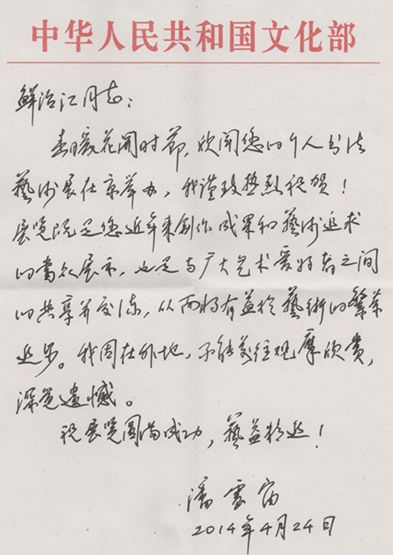 中华人民共和国文化部
鲜治江同志：
春暖花开时节，欣闻您的个人书法
藝术展在京举办，我谨致热烈祝贺！
展览既是您近年来创作成果和藝术追求
的当众展示，也是与广大艺术爱好者之间
的共享并交流，从而将有益於藝術的繁荣
进步。我因在外地，不能前往观摩欣赏，
深觉遗憾。
祝展览圆满成功，藝益精进！
潘震宙
2014年4月24日